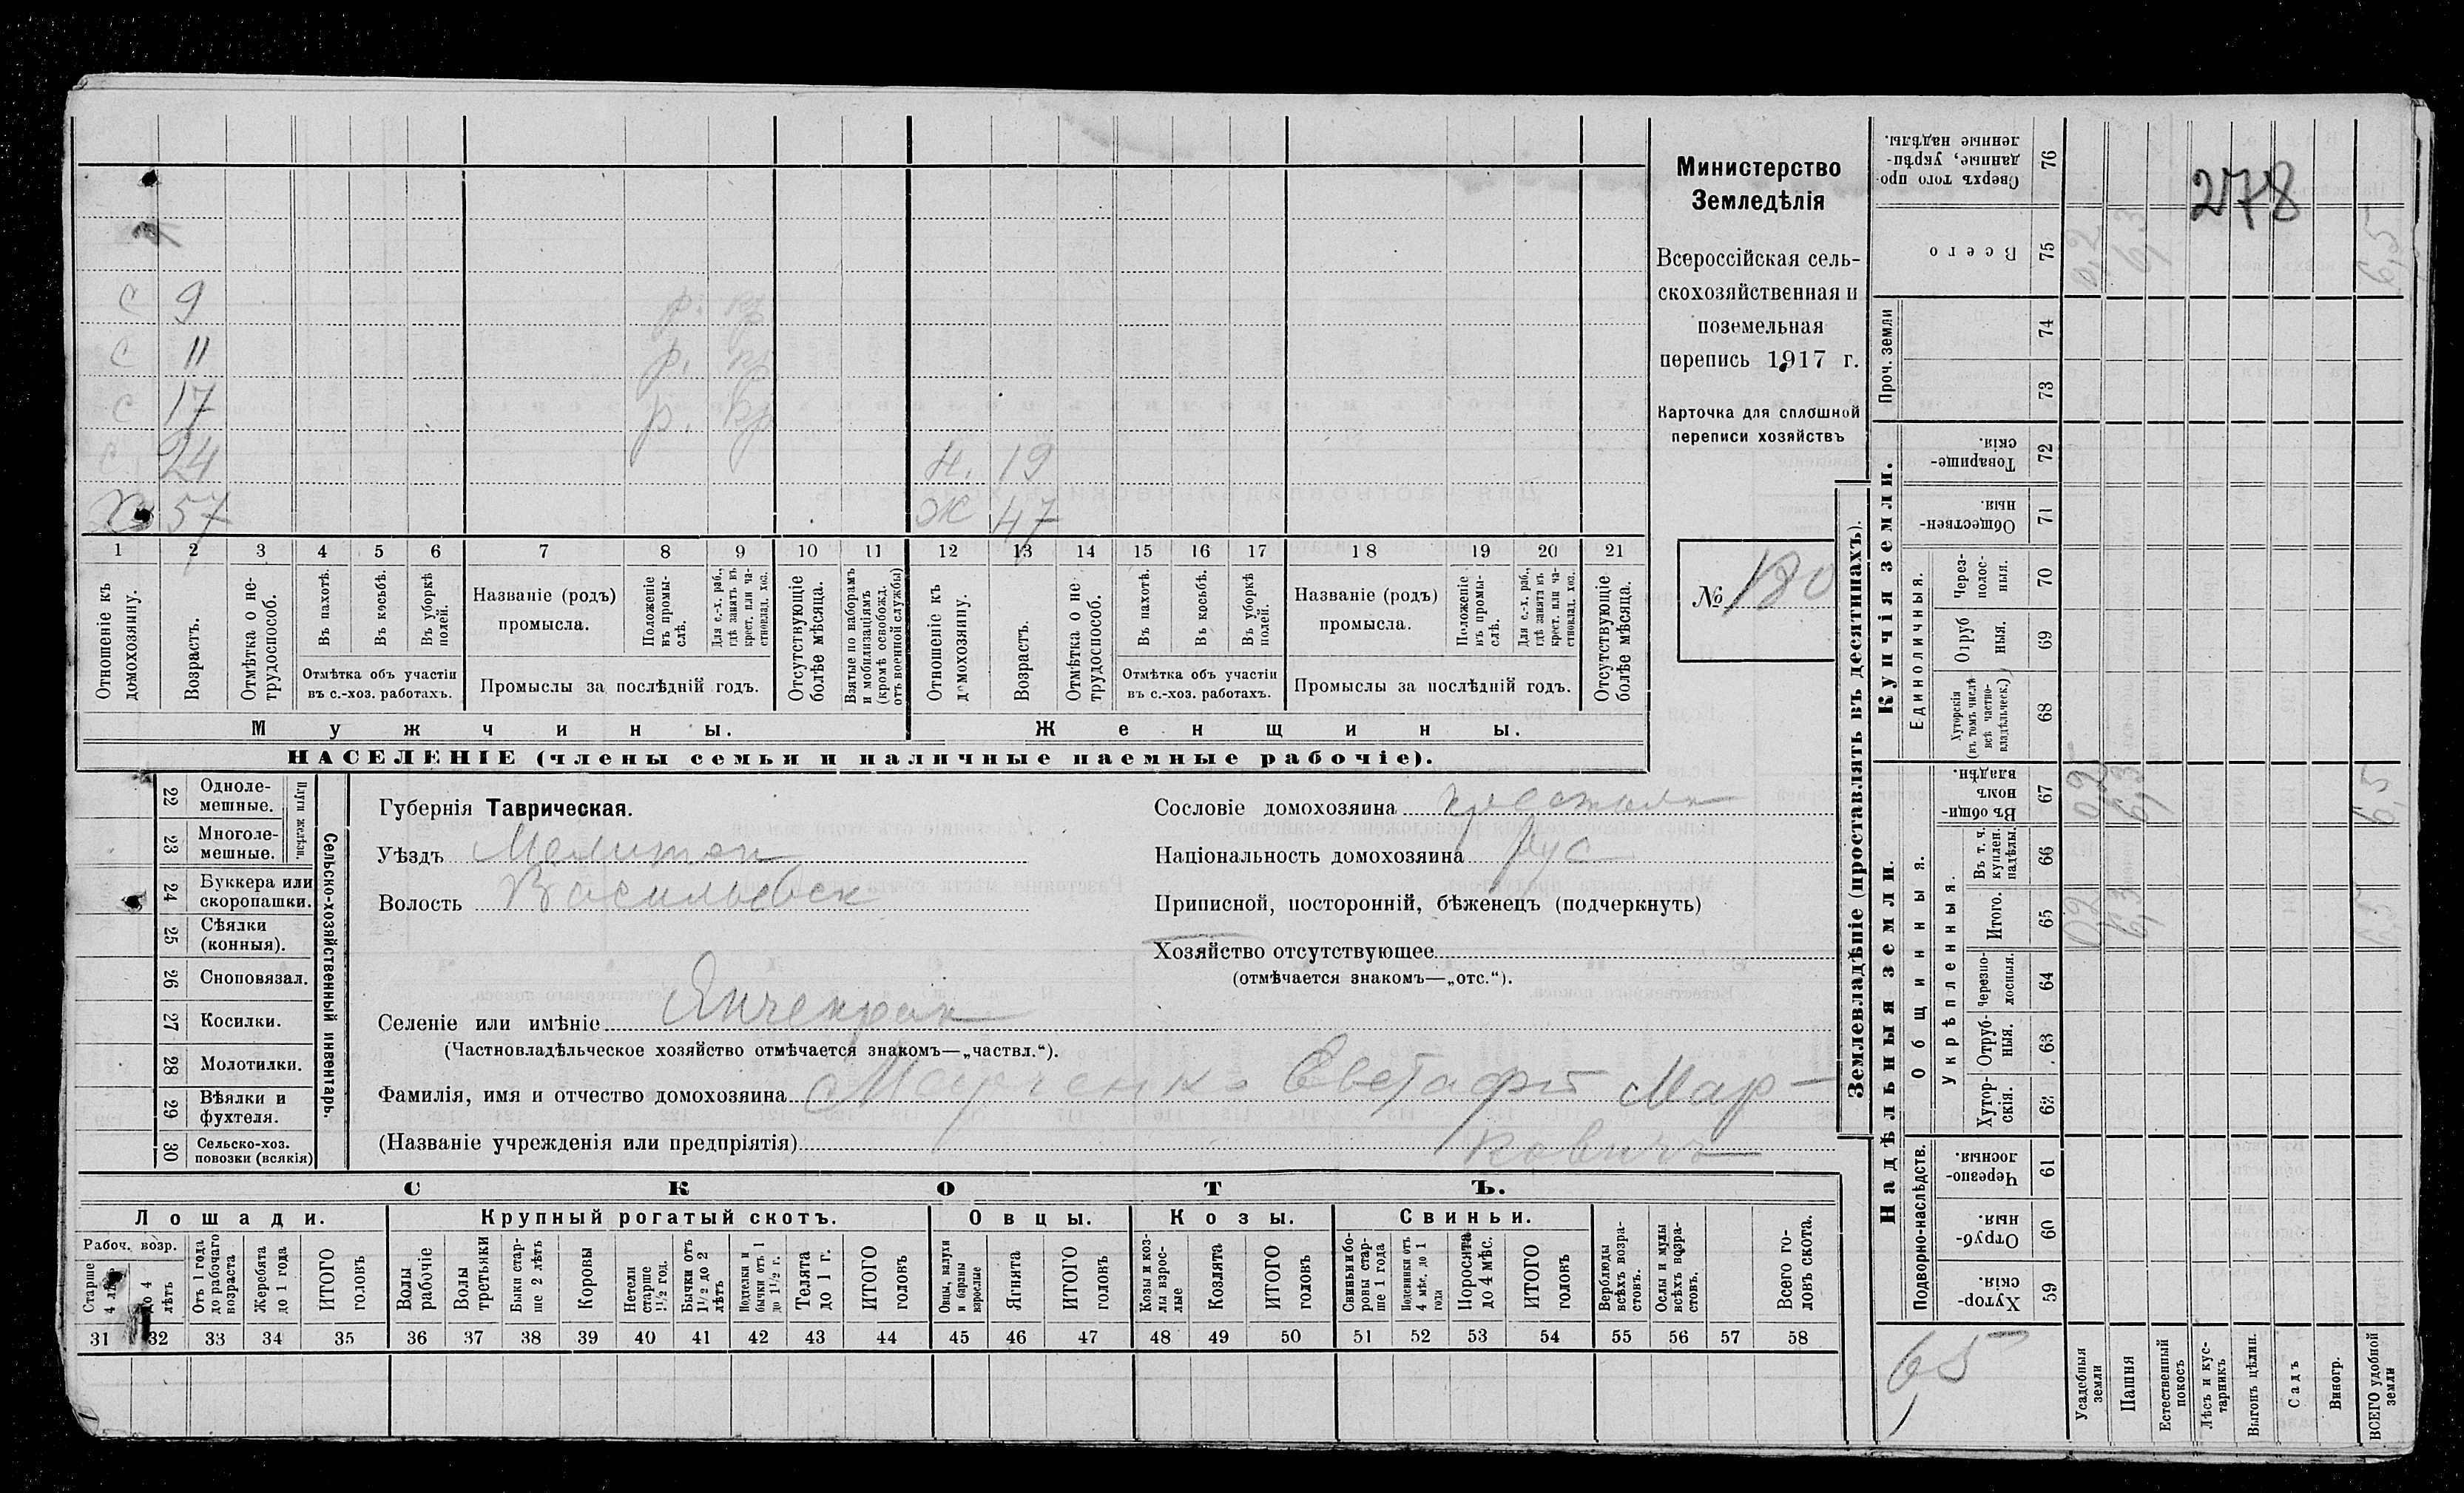 278
Министерство
Земледѣлія
Всероссійская сель-
скохозяйственная и
поземельная
перепись 1917 г.
Карточка для сплошной
переписи хозяйствъ
№ 180
с 9 р. кр
с 11 р. кр
с 17 р. кр
с 24 н. 19
Х 57 Ж 47
1 2 3 4 5 6 7 8 9 10 11 12 13 14 15 16 17 18 19 20 21
Отношеніе къ домохозяину.
Возрастъ.
Отмѣтка о не-трудоспособ.
Въ пахотѣ.
Въ косьбѣ.
Въ уборкѣ полей.
Отмѣтка объ участіи
въ с.-хоз. работахъ.
Названіе (родъ)
промысла.
Положеніе въ промы-слѣ.
Для с.-х. раб., гдѣ занятъ въ крест. или ча-стновлад. хоз.
Промыслы за послѣдній годъ.
Отсутствующіе болѣе мѣсяца.
Взятые по наборамъ и мобилизаціямъ (кромѣ освобожд. отъ военной службы)
Отношеніе къ домохозяину.
Возрастъ.
Отмѣтка о не-трудоспособ.
Въ пахотѣ.
Въ косьбѣ.
Въ уборкѣ полей.
Отмѣтка объ участіи
въ с.-хоз. работахъ.
Названіе (родъ)
промысла.
Положеніе въ промы-слѣ.
Для с.-х. раб., гдѣ занята въ крест. или ча-стновлад. хоз.
Промыслы за послѣдній годъ.
Отсутствующіе болѣе мѣсяца.
Мужчины.
Женщины.
НАСЕЛЕНІЕ (члены семьи и наличные наемные рабочіе).
Сельско-хозяйственный инвентарь.
Плуги желѣзн.
22 Одноле-мешные.
23 Многоле-мешные.
24 Буккера или скоропашки.
25 Сѣялки (конныя).
26 Сноповязал.
27 Косилки.
28 Молотилки.
29 Вѣялки и фухтеля.
30 Сельско-хоз. повозки (всякія)
Губернія Таврическая.
Уѣздъ Мелитоп
Волость Васильевск
Селеніе или имѣніе Янчекрак
(Частновладѣльческое хозяйство отмѣчается знакомъ—„частвл.“).
Фамилія, имя и отчество домохозяина Евстафій Мар-
(Названіе учрежденія или предпріятія) ковичъ
Сословіе домохозяина
Національность домохозяина Рус
Приписной, посторонній, бѣженецъ (подчеркнуть)
Хозяйство отсутствующее
(отмѣчается знакомъ—„отс.“).
СКОТЪ.
Лошади.
Крупный рогатый скотъ.
Овцы.
Козы.
Свиньи.
Рабоч. возр.
Старше 4 лѣтъ
до 4 лѣтъ
Отъ 1 года до рабочаго возраста
Жеребята до 1 года
ИТОГО головъ
Волы рабочіе
Волы третьяки
Быки стар-ше 2 лѣтъ
Коровы
Нетели старше 1½ год.
Бычки отъ 1½ до 2 лѣтъ
Подтелки и бычки отъ 1 до 1½ г.
Телята до 1 г.
ИТОГО головъ
Овцы, валухи и бараны взрослые
Ягнята
ИТОГО головъ
Козы и коз-лы взрос-лые
Козлята
ИТОГО головъ
Свиньи и бо-ровы стар-ше 1 года
Подсвинки отъ 4 мѣс. до 1 года
Поросята до 4 мѣс.
ИТОГО головъ
Верблюды всѣхъ возра-стовъ.
Ослы и мулы всѣхъ возра-стовъ.
Всего го-ловъ скота.
31 32 33 34 35 36 37 38 39 40 41 42 43 44 45 46 47 48 49 50 51 52 53 54 55 56 57 58
Землевладѣніе (проставлять въ десятинахъ).
Купчія земли.
Надѣльныя земли.
Сверхъ того про-данные, укрѣп-ленные надѣлы. 76
Всего 75 0,2 6,3 6,5
Проч. земли 74 73
Товарище-скія. 72
Обществен-ныя. 71
Единоличныя.
Через-полос-ныя. 70
Отруб ныя. 69
Хуторскія (въ томъ числѣ всѣ частно-владѣльческ.) 68
Общинныя.
Въ общин-номъ владѣн. 67 0,2 6,3 6,5
Укрѣпленныя.
Въ т. ч. куплен. надѣлы. 66
Итого. 65 0,2 6,3 6,5
Черезпо-лосныя. 64
Отруб-ныя. 63
Хутор-скія. 62
Подворно-наслѣдств.
Черезпо-лосныя. 61
Отруб-ныя. 60
Хутор-скія. 59
6,5
Усадебныя земли
Пашня
Естественный покосъ
Лѣсъ и кус-тарникъ
Выгонъ цѣлин.
Садъ
Виногр.
ВСЕГО удобной земли